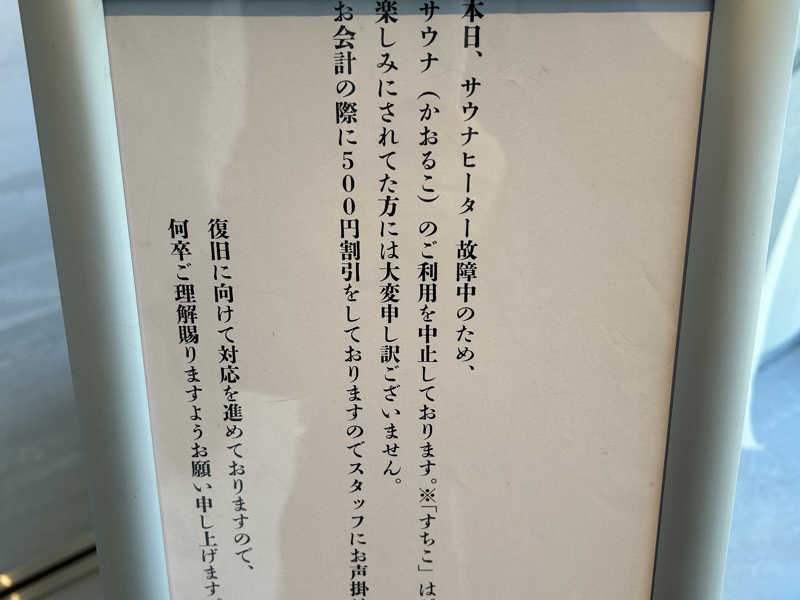 本日、サウナヒーター故障中のため、
サウナ（かおるこ）のご利用を中止しております。※「すちこ」は
楽しみにされてた方には大変申し訳ございません。
お会計の際に500円割引をしておりますのでスタッフにお声掛
復旧に向けて対応を進めておりますので、
何卒ご理解賜りますようお願い申し上げます